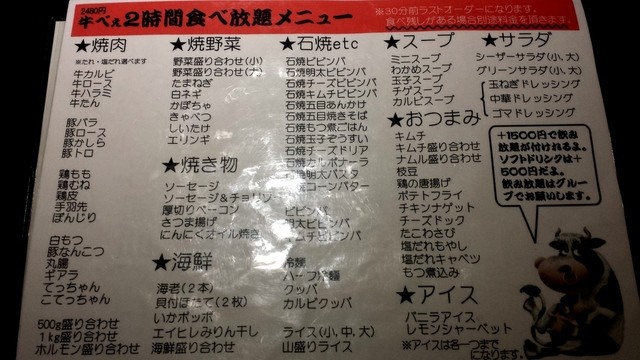 2480円
牛べぇ2時間食べ放題メニュー
※30分前ラストオーダーになります。
食べ残しがある場合別途料金を頂きます。
★焼肉
※たれ・塩だれ選べます
牛カルビ
牛ロース
牛ハラミ
牛たん
豚バラ
豚ロース
豚かしら
豚トロ
鶏もも
鶏むね
鶏皮
手羽先
ぼんじり
白もつ
豚なんこつ
丸腸
ギアラ
てっちゃん
こてっちゃん
500g盛り合わせ
1kg盛り合わせ
ホルモン盛り合わせ
★焼野菜
野菜盛り合わせ(小)
野菜盛り合わせ(大)
たまねぎ
白ネギ
かぼちゃ
きゃべつ
しいたけ
エリンギ
★焼き物
ソーセージ
ソーセージ&チョリソ
厚切りベーコン
さつま揚げ
にんにくオイル焼き
★海鮮
海老(2本)
貝付ほたて(2枚)
いかポッポ
エイヒレみりん干し
海鮮盛り合わせ
★石焼etc
石焼ビビンバ
石焼明太ビビンバ
石焼チーズビビンバ
石焼キムチビビンバ
石焼五目あんかけ
石焼五目焼きそば
石焼もつ煮ごはん
石焼玉子ぞうすい
石焼チーズドリア
石焼カルボナーラ
石焼明太パスタ
石焼コーンバター
ビビンバ
明太ビビンバ
キムチビビンバ
冷麺
ハーフ冷麺
クッパ
カルビクッパ
ライス(小、中、大)
山盛りライス
★スープ
ミニスープ
わかめスープ
玉子スープ
チゲスープ
カルビスープ
★おつまみ
キムチ
キムチ盛り合わせ
ナムル盛り合わせ
枝豆
鶏の唐揚げ
ポテトフライ
チキンナゲット
チーズドック
たこわさび
塩だれもやし
塩だれキャベツ
もつ煮込み
★アイス
バニラアイス
レモンシャーベット
※アイスは各一つまで
になります。
★サラダ
シーザーサラダ(小、大)
グリーンサラダ(小、大)
玉ねぎドレッシング
中華ドレッシング
ゴマドレッシング
+1500円で飲み
放題が付けれるよ。
ソフトドリンクは+
500円だよ。
飲み放題はグルー
プでお願いします。